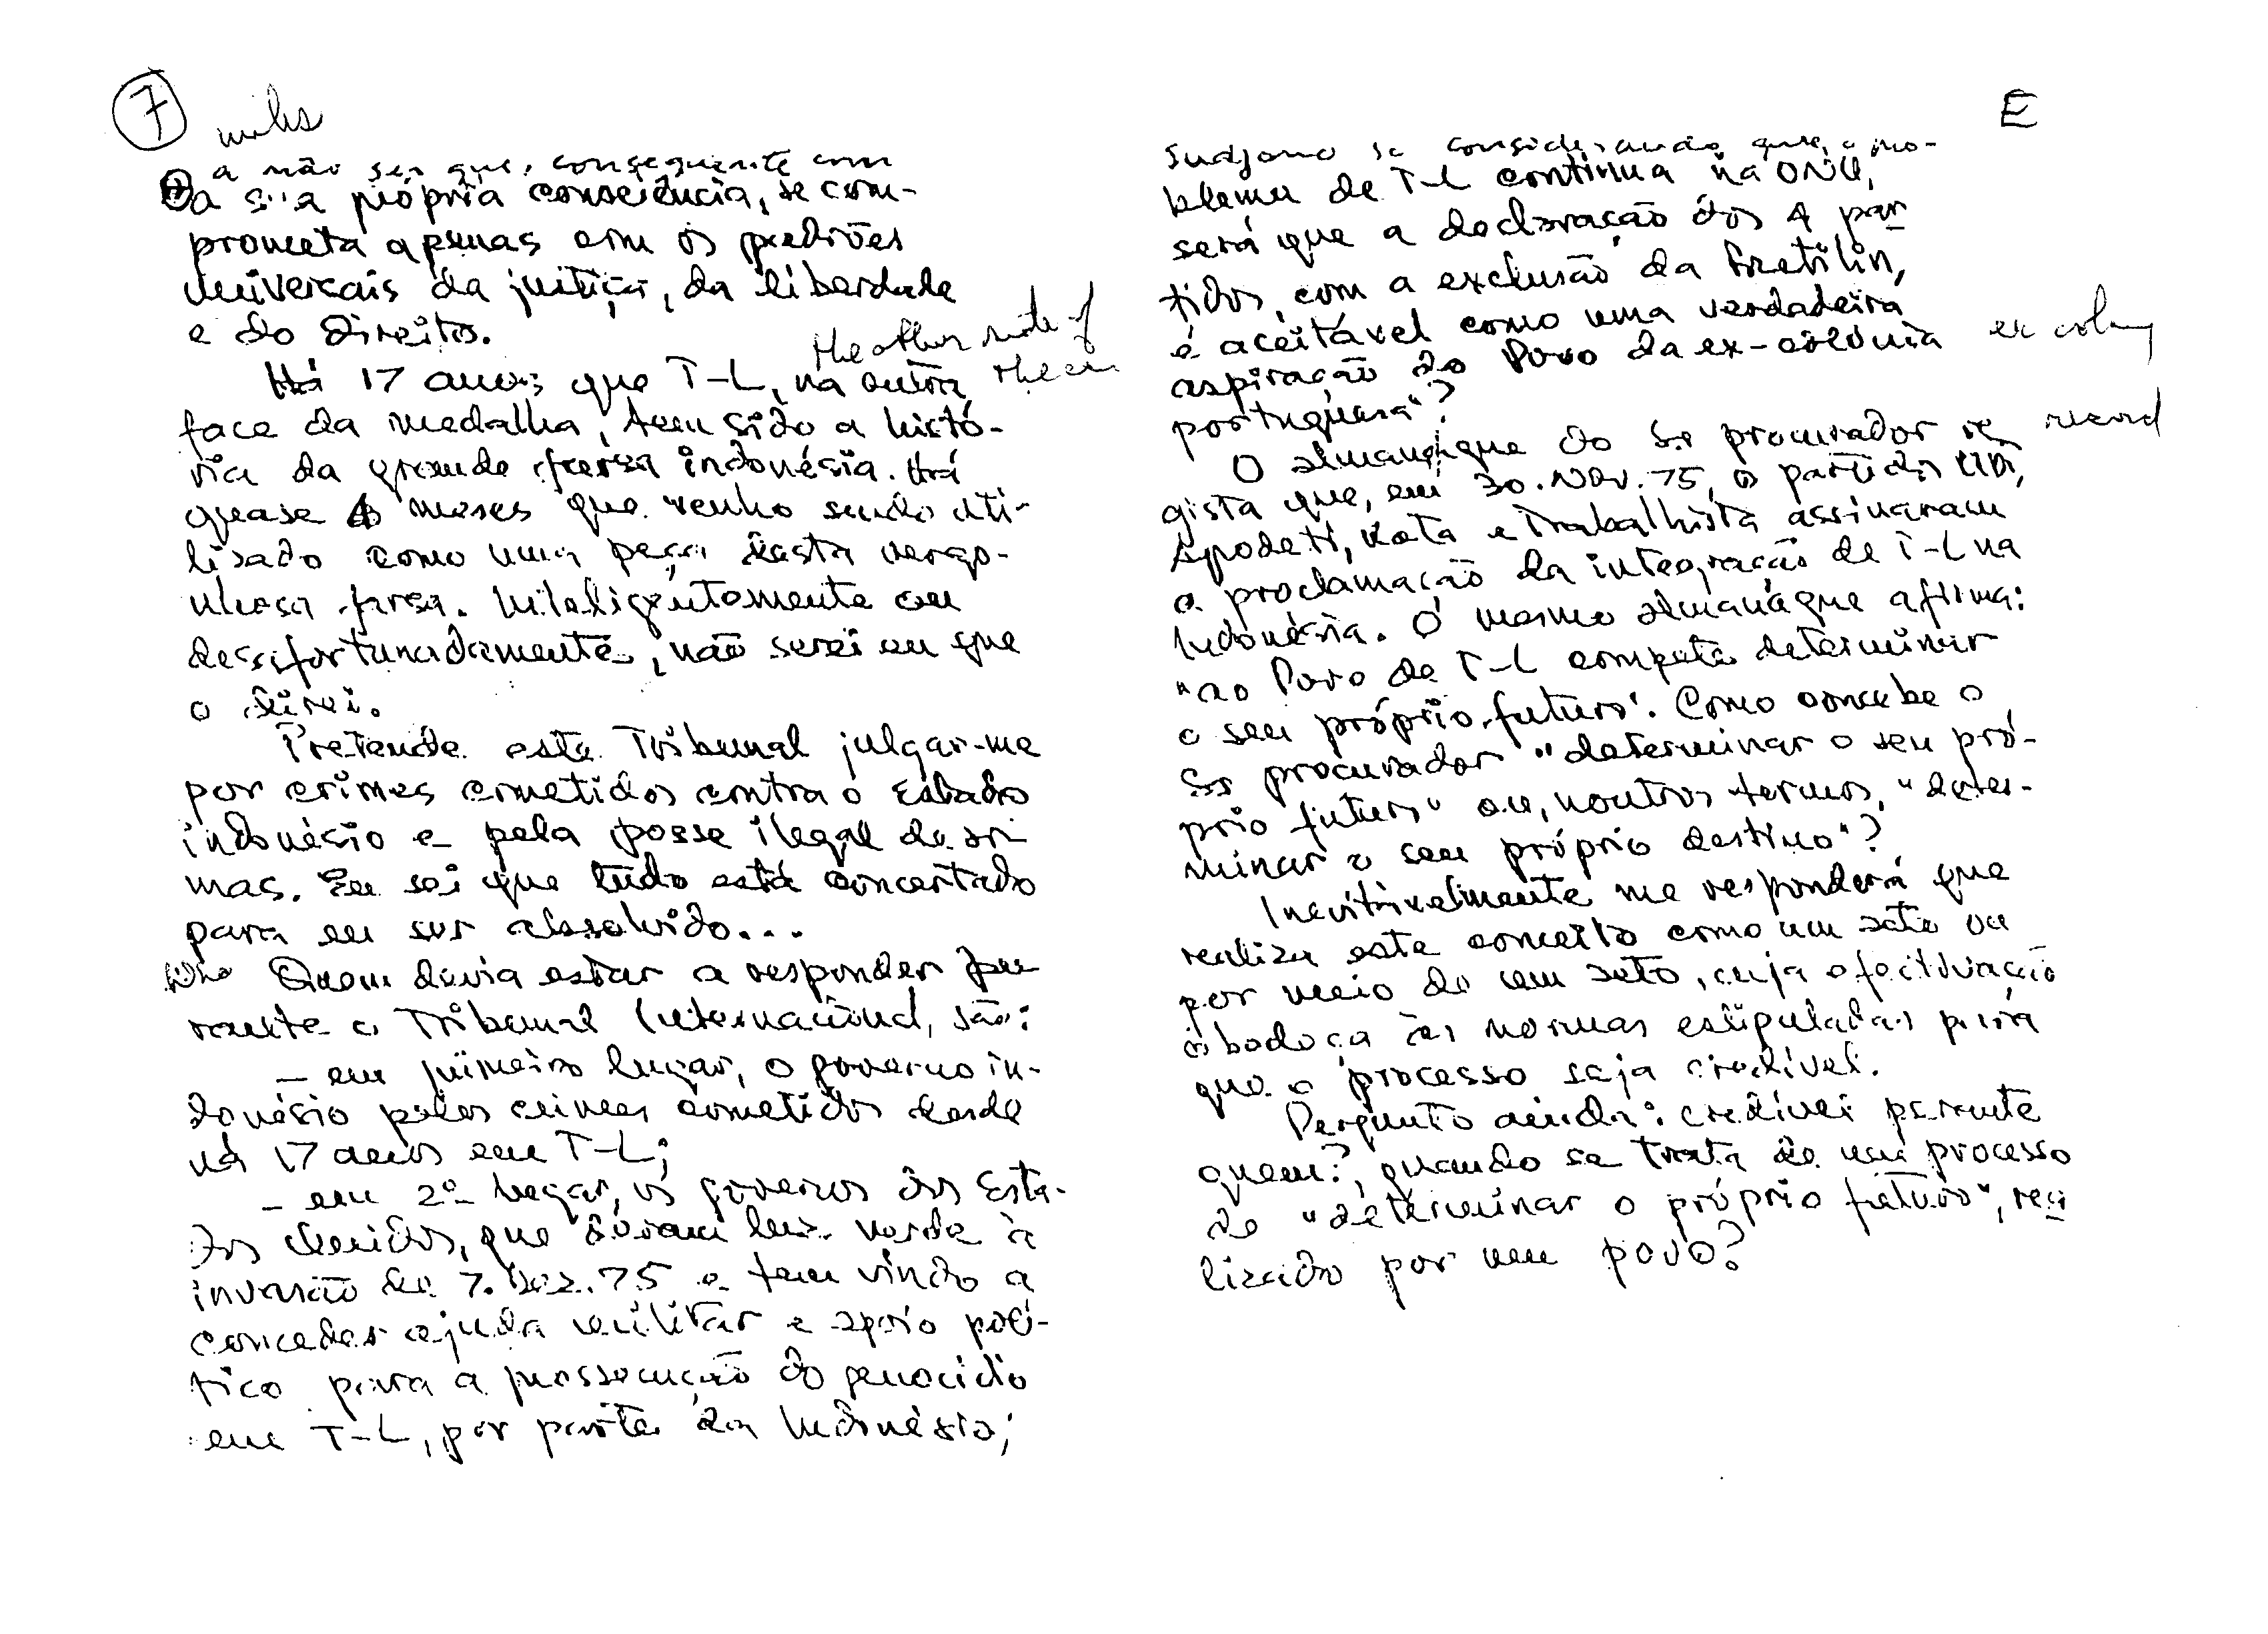 7
a não ser que, consequente com
a sua própria consciência, se com-
prometa apenas com os padrões
universais da justiça, da liberdade
e do direito.
the other side of
Há 17 anos que T-L, na outra
face da medalha, tem sido a histó-
ria da grande farsa indonésia. Há
quase 4 meses que venho sendo uti-
lizado como uma peça desta vergo-
nhosa farsa. Inteligentemente ou
desafortunadamente, não serei eu que
o direi.
Pretende este Tribunal julgar-me
por crimes cometidos contra o Estado
indonésio e pela posse ilegal de ar-
mas. Eu sei que tudo está concertado
para eu ser absolvido...
Who Quem devia estar a responder pe-
rante o Tribunal Internacional, são:
– em primeiro lugar, o governo in-
donésio pelos crimes cometidos desde
há 17 anos em T-L;
– em 2º lugar, os governos dos Esta-
dos Unidos, que deram luz verde à
invasão de 7. Dez. 75 e tem vindo a
conceder ajuda militar e apoio polí-
tico para a prossecução do genocídio
em T-L, por parte da Indonésia;
E
Sudjono se considerando que o pro-
blema de T-L continua na ONU,
será que a declaração dos 4 par-
tidos, com a exclusão da Fretilin,
é aceitável como uma verdadeira
aspiração do Povo da ex-colónia ex colony
portuguesa"?
O almanaque do Sr procurador re- record
gista que, em 30. Nov. 75, os partidos UDT,
Apodeti, Kota e Trabalhista assinaram
a proclamação da integração de T-L na
Indonésia. O mesmo almanaque afirma:
"ao Povo de T-L compete determinar
o seu próprio futuro'. Como concebe o
Sr procurador "determinar o seu pró-
prio futuro" ou, noutros termos, "deter-
minar o seu próprio destino"?
Inevitavelmente me responderá que
realiza este conceito como um acto ou
por meio de um acto, cuja efectivação
obedeça às normas estipuladas para
que o processo seja credível.
Pergunto ainda: credível perante
quem?, quando se trata de um processo
de "determinar o próprio futuro", rea
lizado por um povo?